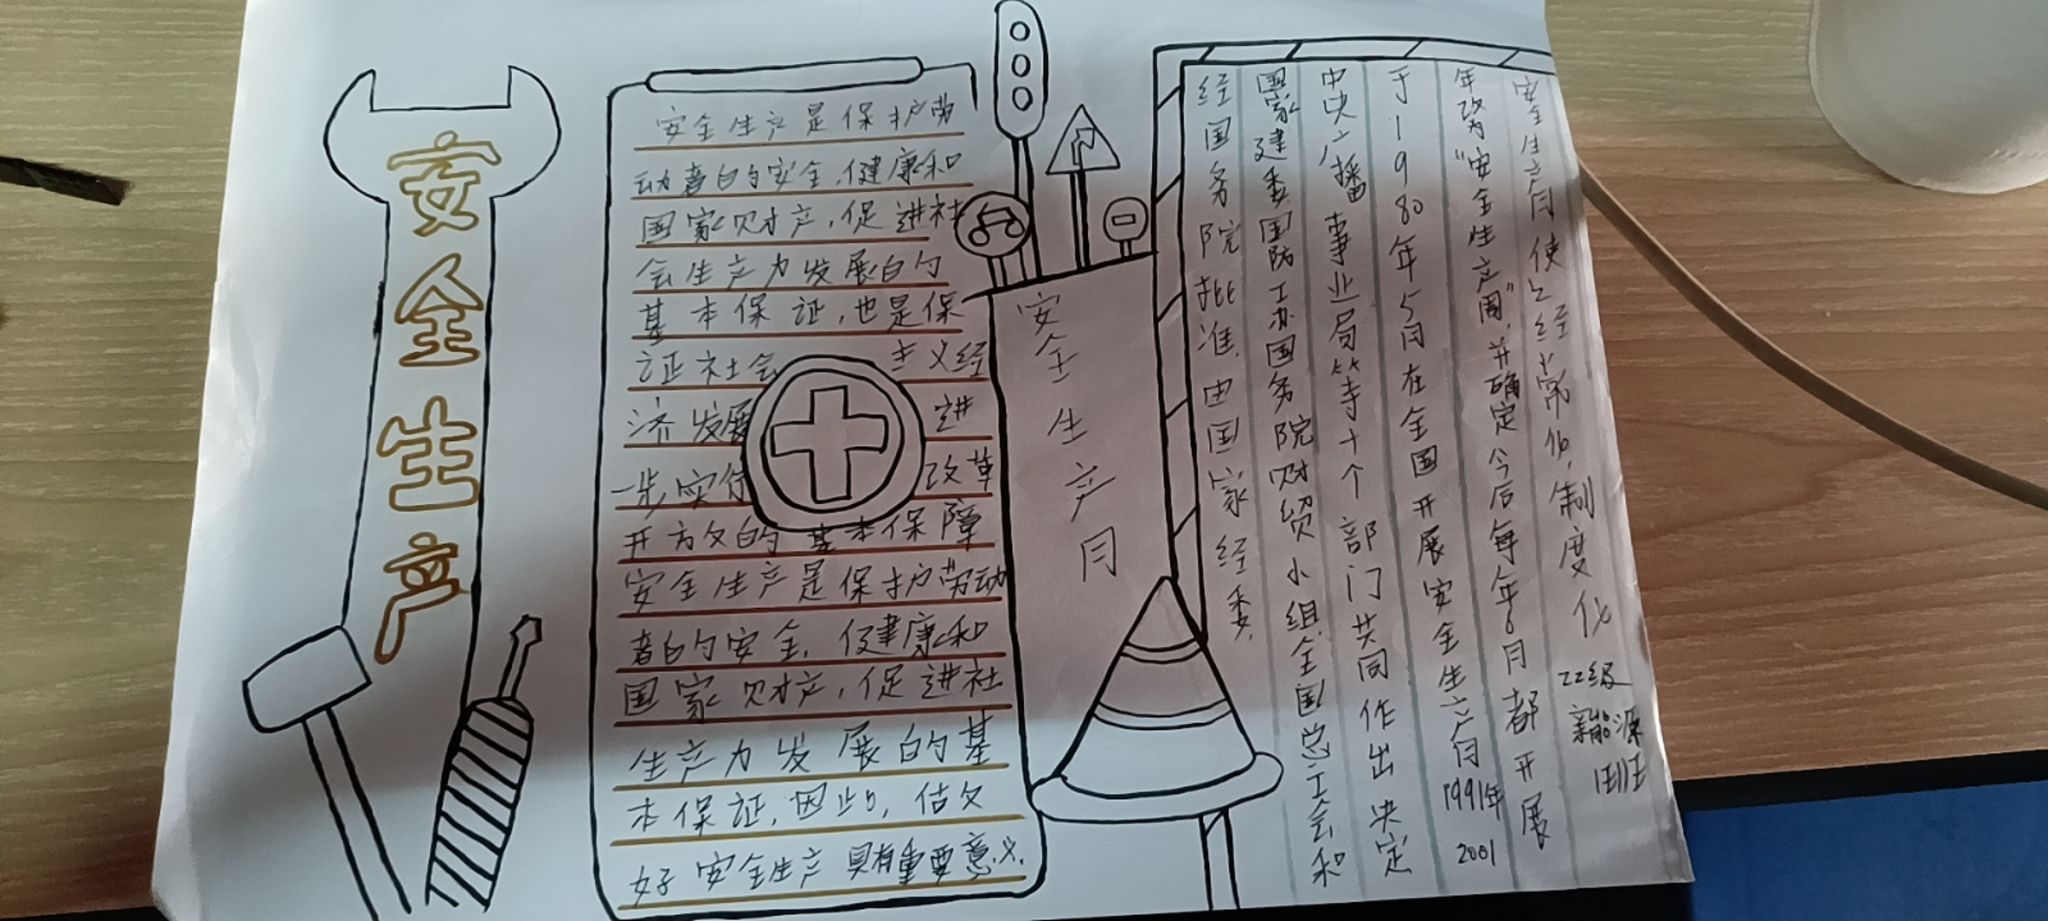 安全生产
安全生产是保护劳
动者的安全,健康和
国家财产,促进社
会生产力发展的
基本保证,也是保
证社会主义经
济发展进
一步实行改革
开方文的基本保障
安全生产是保护劳动
者的安全,健康和
国家财产,促进社
生产力发展的基
本保证,因此,估攵
好安全生产具有重要意义.
安全生产月
经国务院批准,由国家经委
国家建委国防工办国务院财贸小组全国总工会和
中央广播事业局等十个部门共同作出决定
于1980年5月在全国开展安全生产月1991年
年改为"安全生产周",并确定今后每年6月都开展
2001
安全生产月使之经常化,制度化
22级
新能源